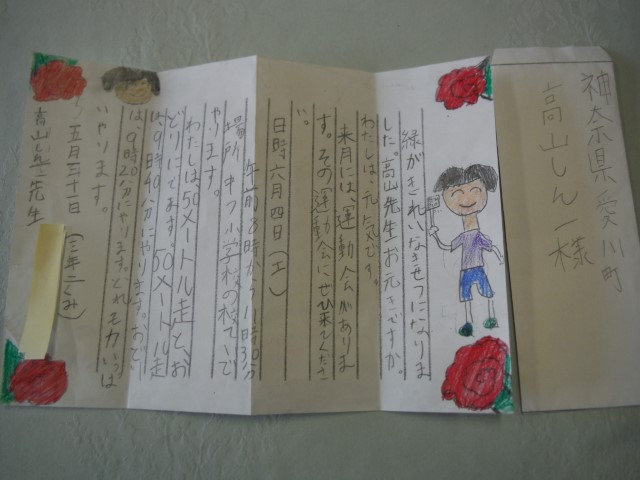 神奈県愛川町
高山しん一様
緑がきれいなきせつになりま
した。高山先生お元きですか。
わたしは、元気です。
来月には、運動会がありま
す。その運動会にぜひ来てくださ
い。
日時 六月四日(土)
午前8時から11時30分
場所 中つ小学校の校ていで
やります。
わたしは、50メートル走と、お
どりにでます。50メートル走
は、9時40分にやります。おどり
は、9時20分にやります。どれも力いっぱ
いやります。
五月三十一日(三年二くみ)
高山しん一先生